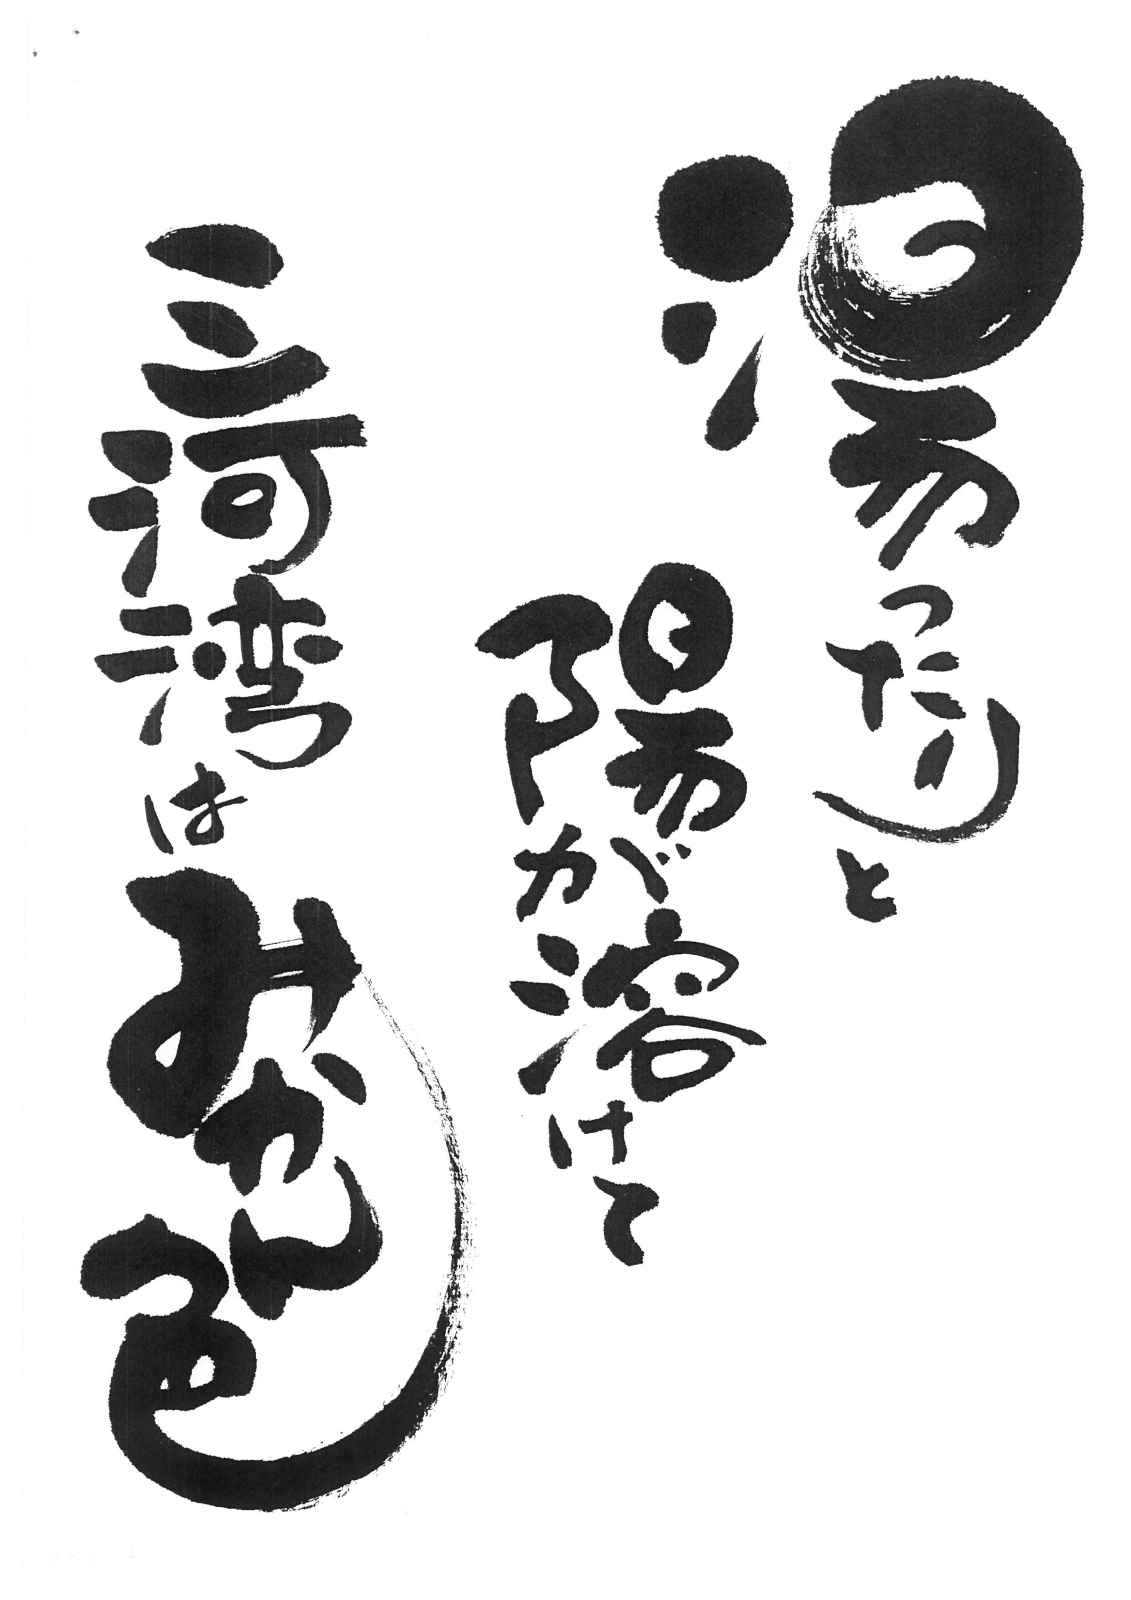 湯ったりと
陽が溶けて
三河湾はみかん色